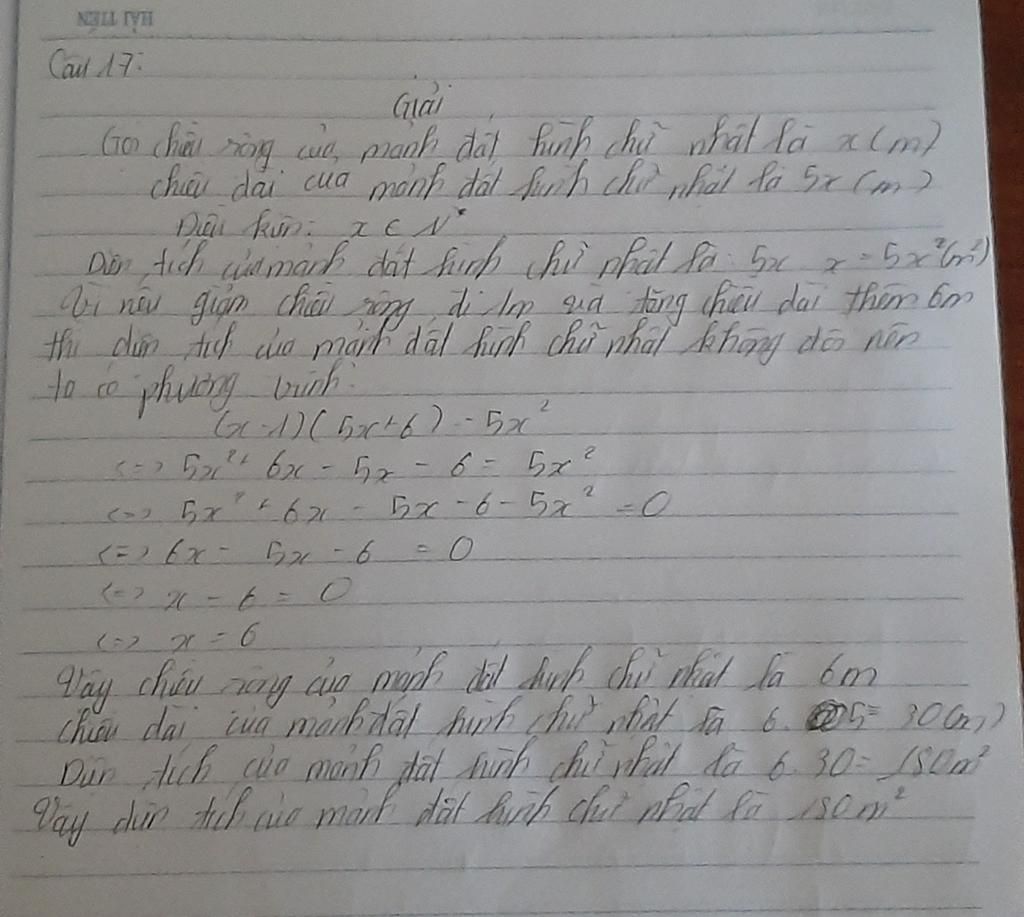 HẢI TIẾN
Câu 17:
Giải
Gọi chiều rộng của mảnh đất hình chữ nhật là x (m)
chiều dài của mảnh đất hình chữ nhật là 5x (m)
Điều kiện: x ∈ N*
Diện tích của mảnh đất hình chữ nhật là: 5x . x = 5x²(m²)
Vì nếu giảm chiều rộng đi 1m và tăng chiều dài thêm 6m
thì diện tích của mảnh đất hình chữ nhật không đổi nên
ta có phương trình:
(x - 1)(5x + 6) = 5x²
<=> 5x² + 6x - 5x - 6 = 5x²
<=> 5x² + 6x - 5x - 6 - 5x² = 0
<=> 6x - 5x - 6 = 0
<=> x - 6 = 0
<=> x = 6
Vậy chiều rộng của mảnh đất hình chữ nhật là 6m
chiều dài của mảnh đất hình chữ nhật là 6. 5 = 30(m)
Diện tích của mảnh đất hình chữ nhật là 6.30 = 180m²
Vậy diện tích của mảnh đất hình chữ nhật là 180m²